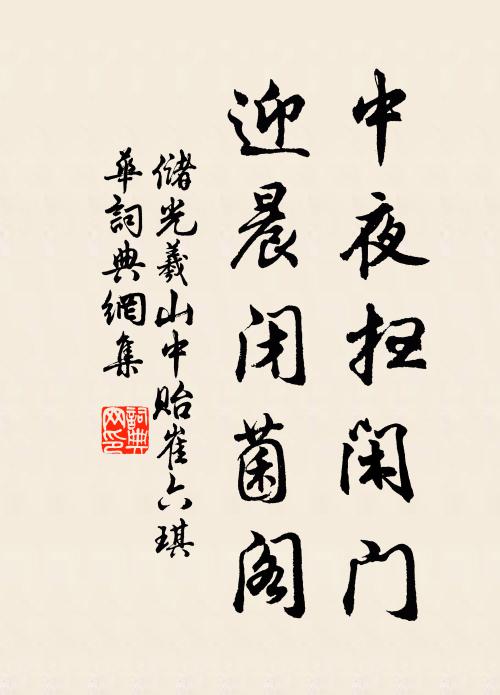 中夜扫闲门
迎晨闭菌阁
儲光羲山中貽崔六琪
華詞典網集
詞典网印